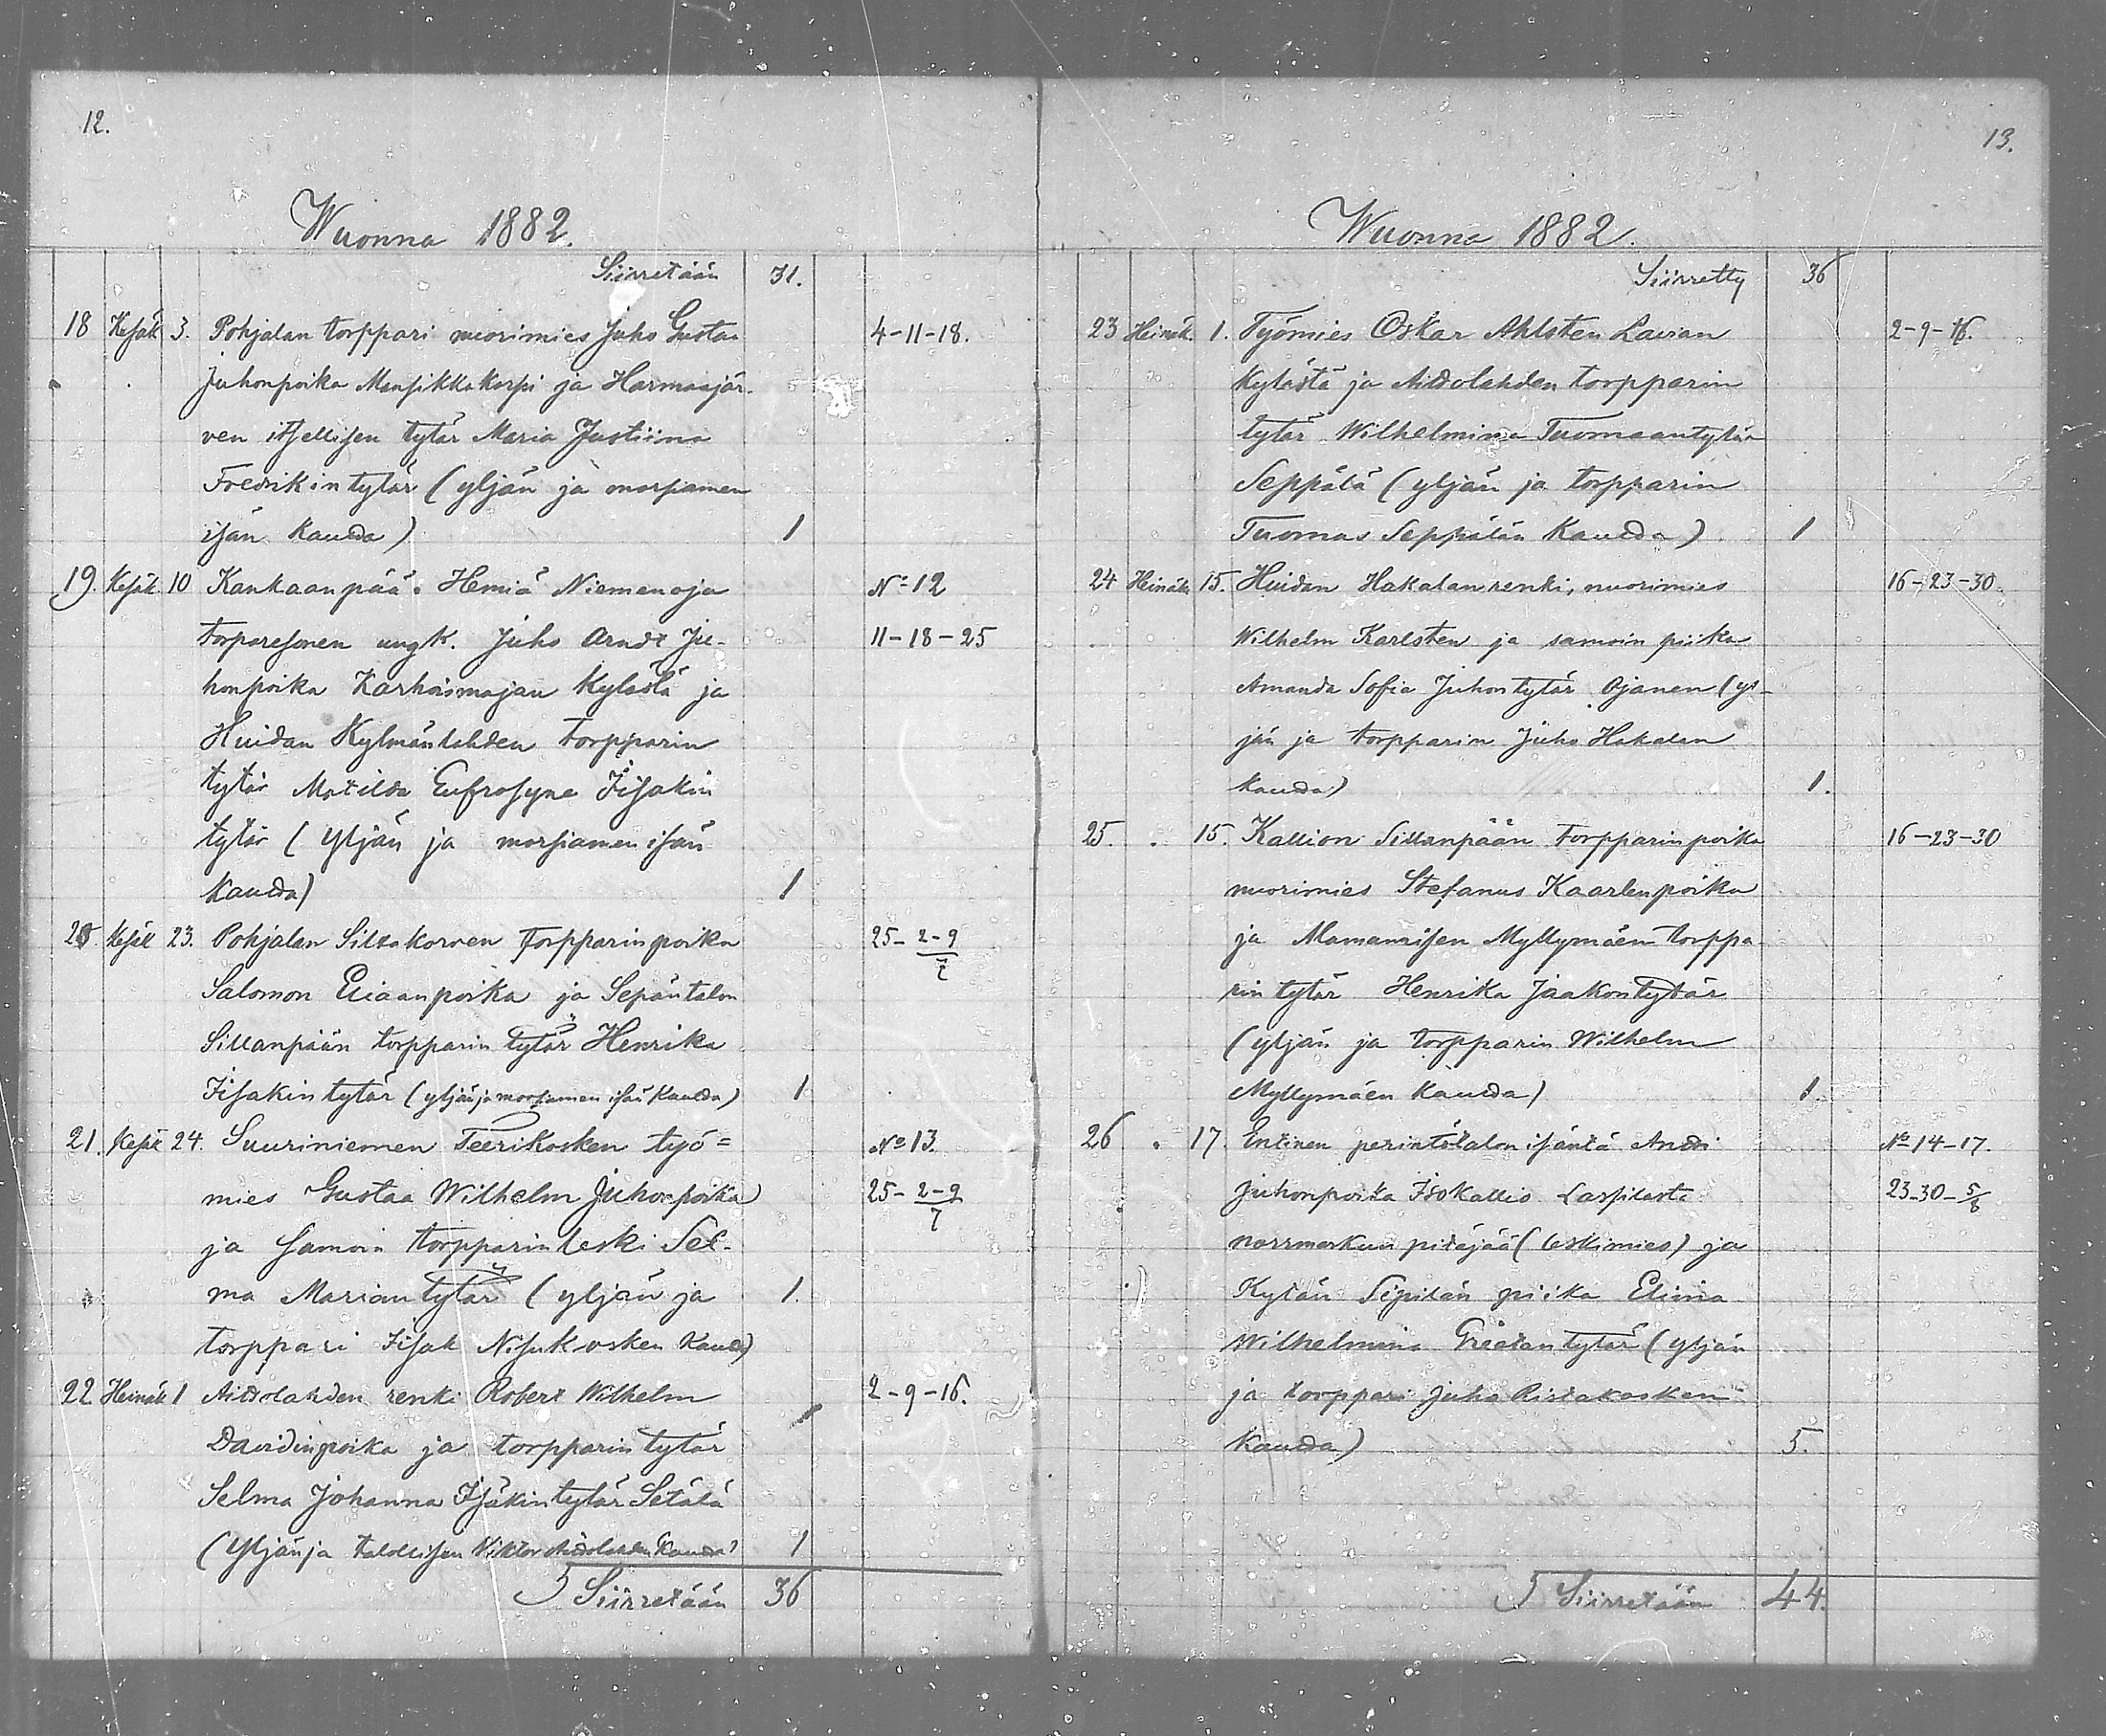 12.
Wuonna 1882.
Siirretään 31.
18 Kesäk 3. Pohjalan torppari nuorimies Juho Gustaa 4-11-18.
Juhonpoika Mansikkakorpi ja Harmaajär-
ven itsellisen tytär Maria Justiina
Fredrikintytär (yljän ja morsiamen
isän kautta) 1
19. Kesäk 10 Kankaanpää. Hemiä Niemenoja No 12
torparesonen ungk. Juho Arndt Ju- 11-18-25
honpoika Karhoismajan kylästä ja
Huidan Kylmänlahden torpparin
tytär Matilda Eufrosyne Iisakin
tytär (yljän ja morsiamen isän
kautta) 1
20. Kesäk 23. Pohjalan Siltakorven torpparinpoika 25-2-9/7
Salomon Eliaanpoika ja Sepäntalon
Sillanpään torpparin tytär Henrika
Iisakintytär (yljän ja morsiamen isän kautta) 1
21. Kesäk 24. Suuriniemen Teerikosken työ= No 13.
mies Gustaa Wilhelm Juhonpoika 25-2-9/7
ja samoin torpparin leski Sel-
ma Mariantytär (yljän ja 1.
torppari Iisak Nisukosken kautta)
22. Heinäk 1 Aittolahden renki Robert Wilhelm 2-9-16.
Davidinpoika ja torpparin tytär
Selma Johanna Iisäkintytär Setälä
(yljän ja talollisen Viktor Aittolahden kautta) 1
5 Siirretään 36
13.
Wuonna 1882.
Siirretty 36
23 Heinäk. 1. Työmies Oskar Ahlsten Lavian 2-9-16.
kylästä ja Aittolahden torpparin
tytär Wilhelmina Tuomaantytär
Seppälä (yljän ja torpparin
Tuomas Seppälän kautta) 1
24 Heinäk 15. Huidan Hakalan renki, nuorimies 16-23-30.
Wilhelm Karlsten ja samoin piika
Amanda Sofia Juhontytär Ojanen (yl-
jän ja torpparin Juho Hakalan
kautta) 1.
25. " 15. Kallion Sillanpään torpparinpoika 16-23-30
nuorimies Stefanus Kaarlenpoika
ja Mamanisen Myllymäen torppa
rin tytär Henrika Jaakontytär
(yljän ja torpparin Wilhelm
Myllymäen kautta) 1.
26 " 17. Entinen perintötalon isäntä Antti No 14-17.
Juhonpoika Isokallio Lassilasta 23-30-5/8
norrmarkun pitäjää (leskimies) ja
Kylän Sipilän piika Elina
Wilhelmina Gretantytär (yljän
ja torppari Juho Ristakosken
kautta) 5.
5 Siirretään 44.